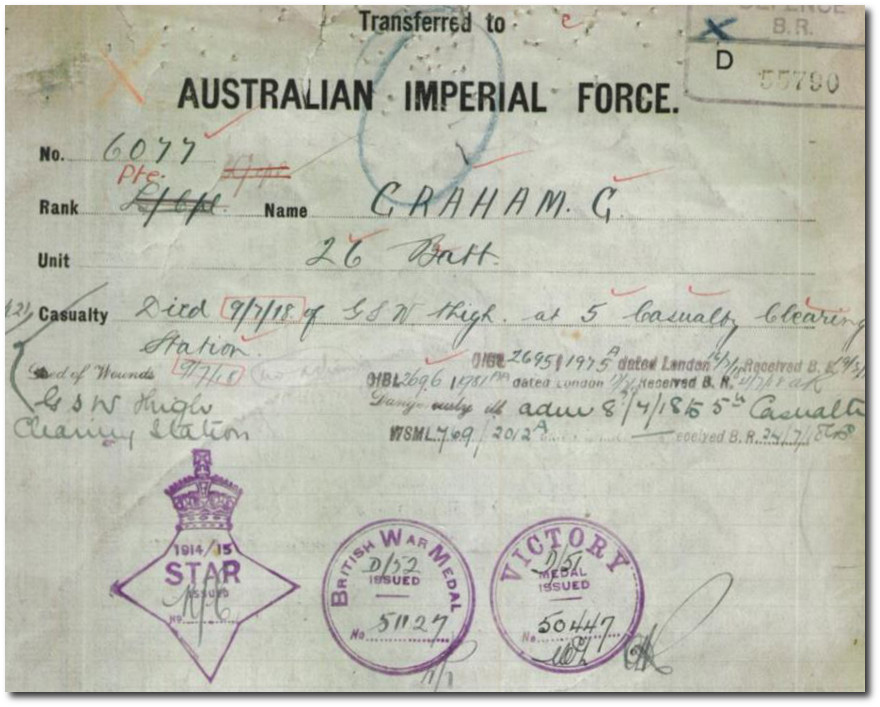 Transferred to
DEFENCE
B.R.
D
55790
AUSTRALIAN IMPERIAL FORCE.
No. 6077
Pte.
Rank L/Cpl. Name GRAHAM. G.
Unit 26 Batt.
Casualty Died 9/7/18 of G S W thigh. at 5 Casualty Clearing
Station.
O/BL 2695 1975A dated London Received B.R.
Died of Wounds 9/7/18
O/BL 2696 1981AA dated London Received B.R.
G S W thigh
Dangerously ill adm 8/7/18 to 5th Casualty
Clearing Station
WSML 769/2012A Received B.R. 24/7/18
1914/15
STAR
ISSUED
No.
BRITISH WAR MEDAL
D/52
ISSUED
No 51127
VICTORY
D/51
MEDAL
ISSUED
No. 50447